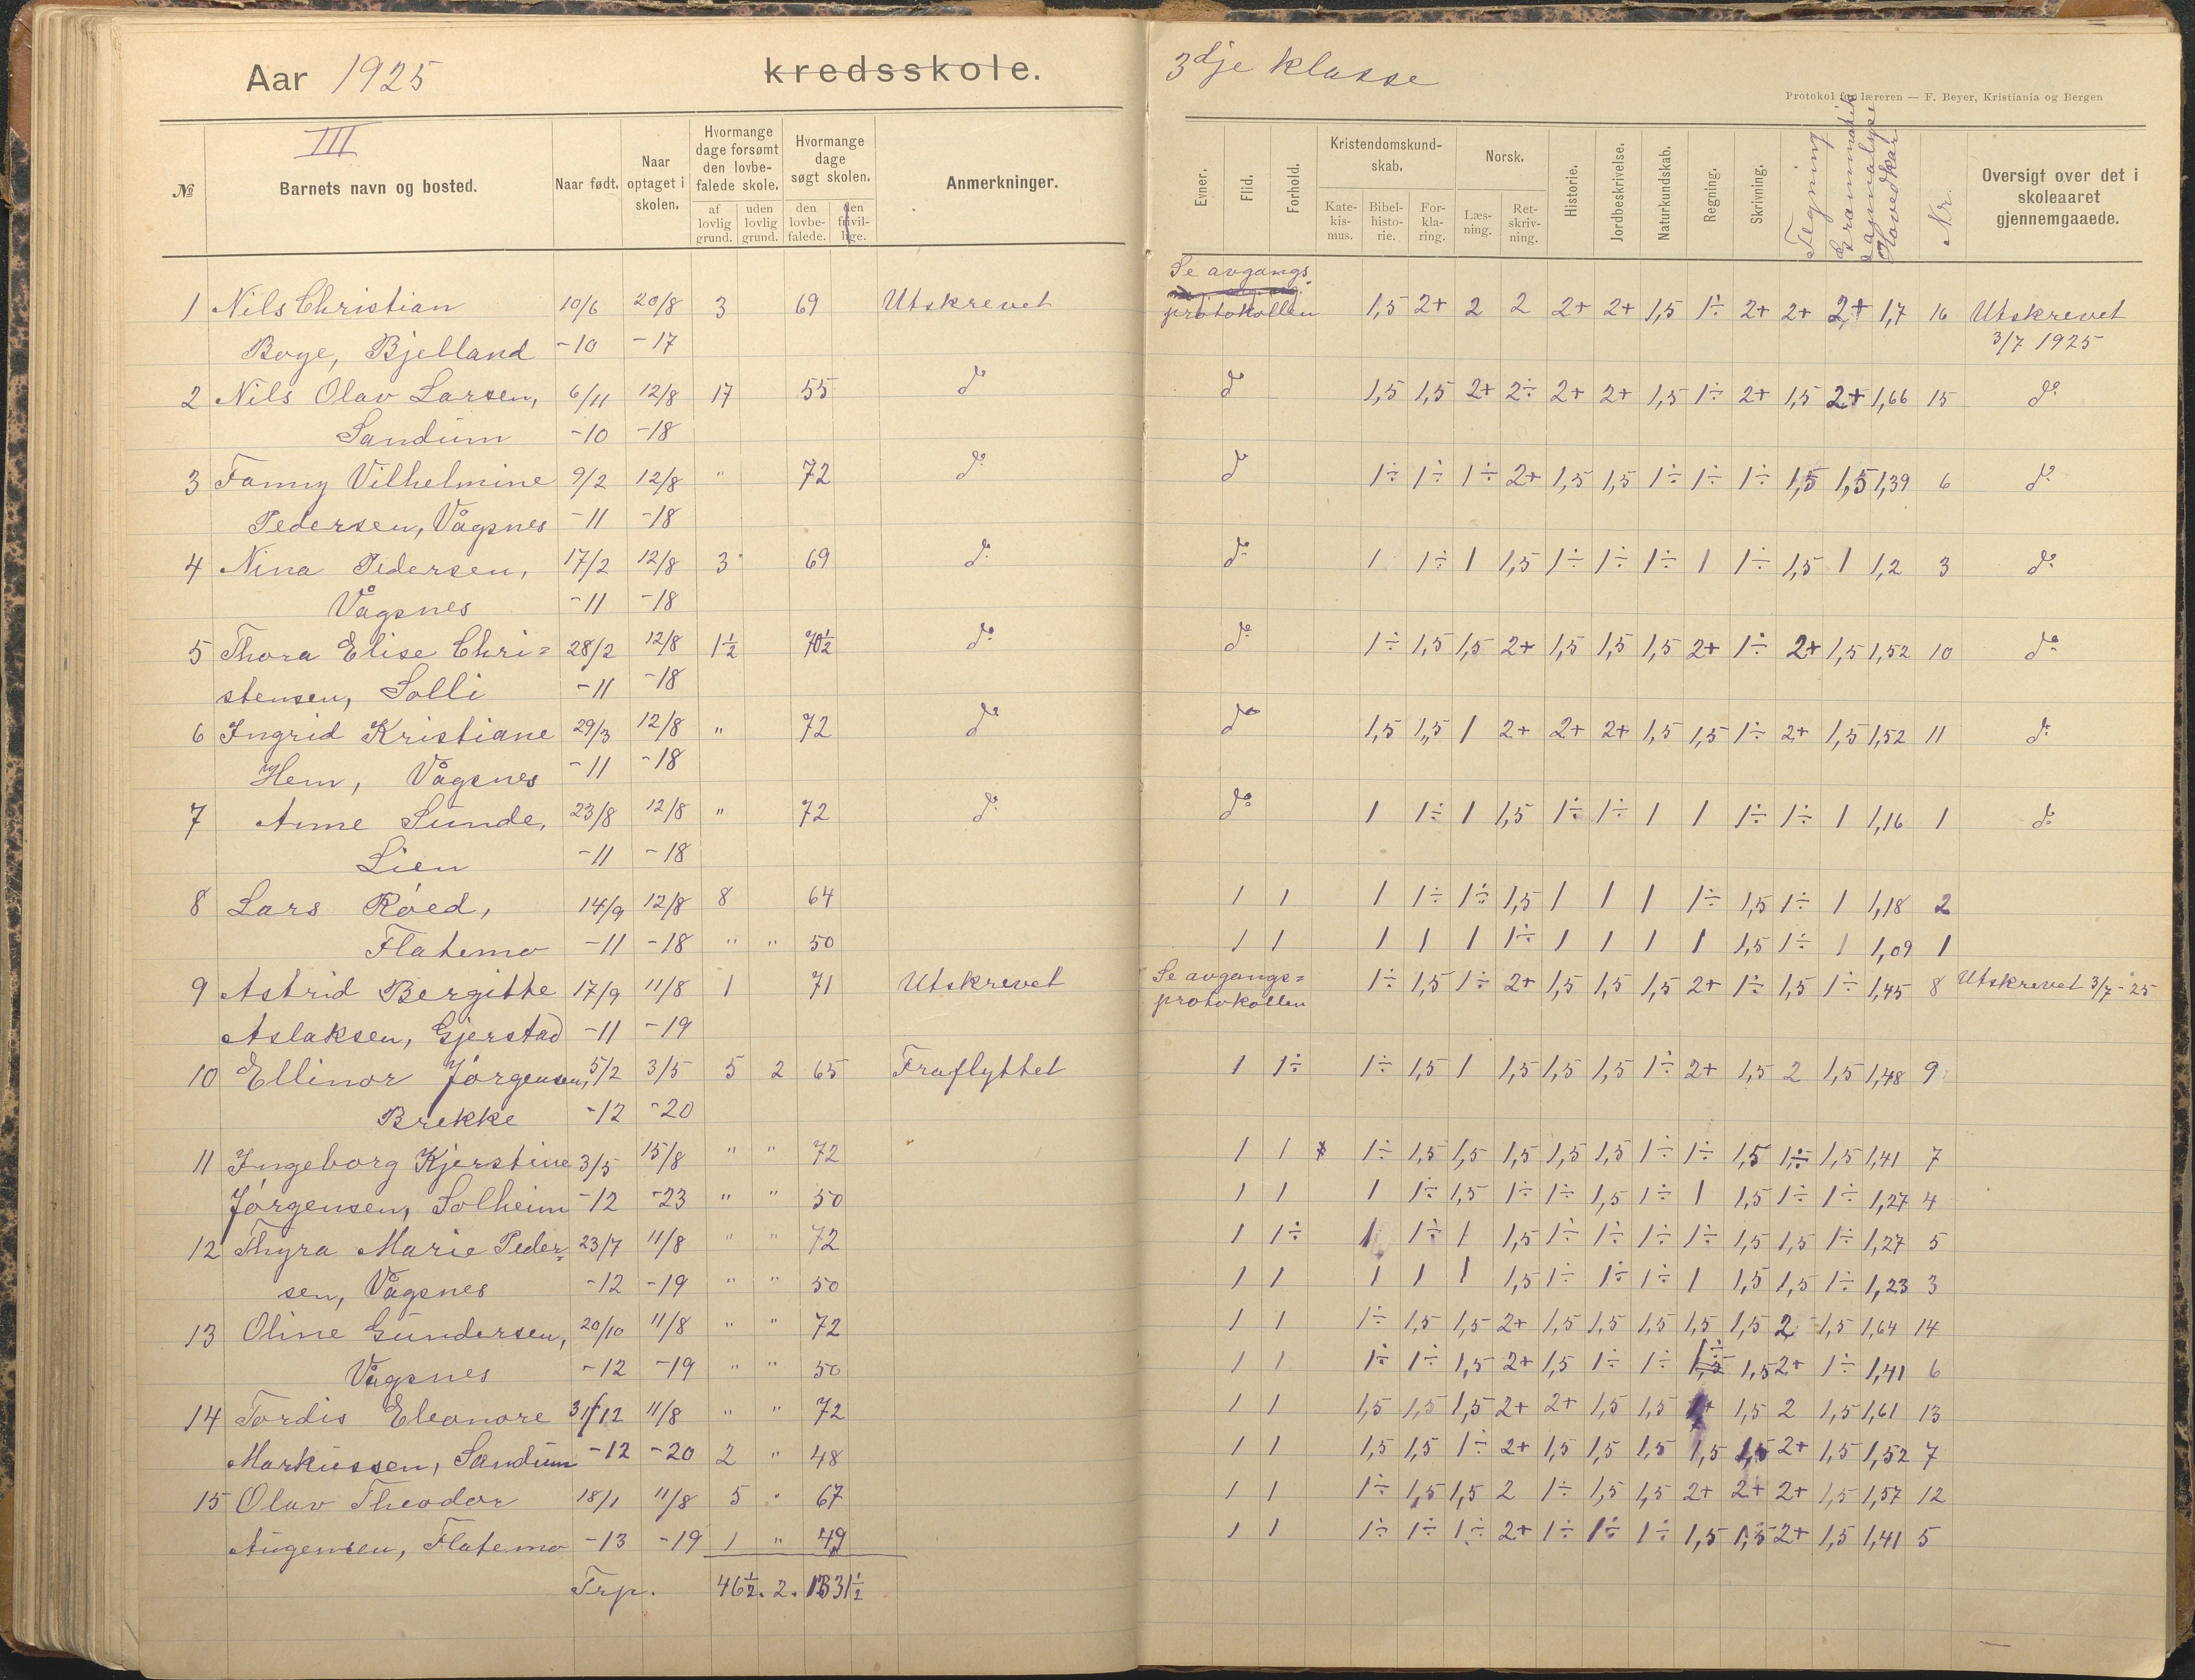 Aar 1925 kredsskole.
III
№ Barnets navn og bosted. Naar født. Naar optaget i skolen. Hvormange dage forsømt den lovbefalede skole. af lovlig grund. uden lovlig grund. Hvormange dage søgt skolen. den lovbefalede. den frivillige. Anmerkninger.
1 Nils Christian 10/6 20/8 3 69 Utskrevet
Boye, Bjelland -10 -17
2 Nils Olav Larsen, 6/11 12/8 17 55 do
Sandum -10 -18
3 Fanny Vilhelmine 9/2 12/8 " 72 do
Pedersen, Vågsnes -11 -18
4 Nina Pedersen, 17/2 12/8 3 69 do
Vågsnes -11 -18
5 Thora Elise Chri= 28/2 12/8 1½ 70½ do
stensen, Solli -11 -18
6 Ingrid Kristiane 29/3 12/8 " 72 do
Hem, Vågsnes -11 -18
7 Anne Sunde, 23/8 12/8 " 72 do
Lien -11 -18
8 Lars Röed, 14/9 12/8 8 64
Flatemo -11 -18 " " 50
9 Astrid Bergitte 17/9 11/8 1 71 Utskrevet
Aslaksen, Gjerstad -11 -19
10 Ellinor Jörgensen, 5/2 3/5 5 2 65 Fraflyttet
Brekke -12 -20
11 Ingeborg Kjerstine 3/5 15/8 " " 72
Jörgensen, Solheim -12 -23 " " 50
12 Thyra Marie Peder= 23/7 11/8 " " 72
sen, Vågsnes -12 -19 " " 50
13 Oline Gundersen, 20/10 11/8 " " 72
Vågsnes -12 -19 " " 50
14 Tordis Eleonore 31/12 11/8 " " 72
Markussen, Sandum -12 -20 2 " 48
15 Olav Theodor 18/1 11/8 5 " 67
Augensen, Flatemo -13 -19 1 " 49
Trp. 46½. 2. 1331½
3dje klasse
Protokol for læreren — F. Beyer, Kristiania og Bergen
Evner. Flid. Forhold. Kristendomskundskab. Katekismus. Bibelhistorie. Forklaring. Norsk. Læsning. Retskrivning. Historie. Jordbeskrivelse. Naturkundskab. Regning. Skrivning. Tegning Grammatik &amp; analyse Hovedkar Nr. Oversigt over det i skoleaaret gjennemgaaede.
Se avgangs
protokollen 1,5 2+ 2 2 2+ 2+ 1,5 1÷ 2+ 2+ 2+ 1,7 16 Utskrevet
3/7 1925
do 1,5 1,5 2+ 2÷ 2+ 2+ 1,5 1÷ 2+ 1,5 2+ 1,66 15 do
do 1÷ 1÷ 1÷ 2+ 1,5 1,5 1÷ 1÷ 1÷ 1,5 1,5 1,39 6 do
do 1 1÷ 1 1,5 1÷ 1÷ 1÷ 1 1÷ 1,5 1 1,2 3 do
do 1÷ 1,5 1,5 2+ 1,5 1,5 1,5 2+ 1÷ 2+ 1,5 1,52 10 do
do 1,5 1,5 1 2+ 2+ 2+ 1,5 1,5 1÷ 2+ 1,5 1,52 11 do
do 1 1÷ 1 1,5 1÷ 1÷ 1 1 1÷ 1÷ 1 1,16 1 do
1 1 1 1÷ 1÷ 1,5 1 1 1 1÷ 1,5 1÷ 1 1,18 2
1 1 1 1 1 1÷ 1 1 1 1 1,5 1÷ 1 1,09 1
Se avgangs= 1÷ 1,5 1÷ 2+ 1,5 1,5 1,5 2+ 1÷ 1,5 1÷ 1,45 8 Utskrevet 3/7-25
protokollen
1 1÷ 1÷ 1,5 1 1,5 1,5 1,5 1÷ 2+ 1,5 2 1,5 1,48 9
1 1 1÷ 1,5 1,5 1,5 1,5 1,5 1÷ 1÷ 1,5 1÷ 1,5 1,41 7
1 1 1 1÷ 1,5 1÷ 1÷ 1,5 1÷ 1 1,5 1÷ 1÷ 1,27 4
1 1÷ 1 1÷ 1 1,5 1÷ 1÷ 1÷ 1÷ 1,5 1,5 1÷ 1,27 5
1 1 1 1 1 1,5 1÷ 1÷ 1÷ 1 1,5 1,5 1÷ 1,23 3
1 1 1÷ 1,5 1,5 2+ 1,5 1,5 1,5 1,5 1,5 2 1,5 1,64 14
1 1 1÷ 1÷ 1,5 2+ 1,5 1÷ 1÷ 1÷ 1,5 2+ 1÷ 1,41 6
1 1 1,5 1,5 1,5 2+ 2+ 1,5 1,5 1,5 2 1,5 1,61 13
1 1 1,5 1,5 1÷ 2+ 1,5 1,5 1,5 1,5 1,5 2+ 1,5 1,52 7
1 1 1÷ 1,5 1,5 2 1÷ 1,5 1,5 2+ 2+ 2+ 1,5 1,57 12
1 1 1÷ 1÷ 1÷ 2+ 1÷ 1÷ 1÷ 1,5 1,5 2+ 1,5 1,41 5